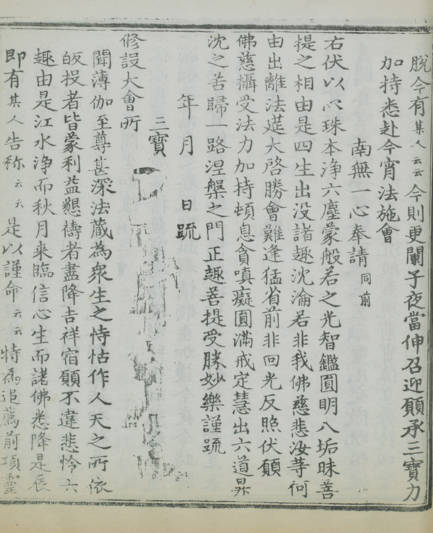 脫今有某人云云今則更闌子夜當伸召迎願承三寶力
加持悉赴今宵法施會
南無一心奉請同前
右伏以心珠本淨六塵蒙般若之光智鑑圓明八垢昧菩
提之相由是四生出没諸趣沈淪若非我佛慈悲汝等何
由出離法莚大啓勝會難逢猛省前非回光反照伏願
佛慈攝受法力加持頓息貪嗔癡圓滿戒定慧出六道昇
沈之苦歸一路涅槃之門正趣菩提受勝妙樂謹疏
年月日疏
三寶
修設大會所
聞薄伽至尊甚深法蔵為衆生之恃怙作人天之所依
皈投者皆蒙利益懇禱者盡降吉祥宿願不違悲怜六
趣由是江水浄而秋月来臨信心生而諸佛悉降是辰
即有某人告称云云是以謹命云云特為追薦前項靈